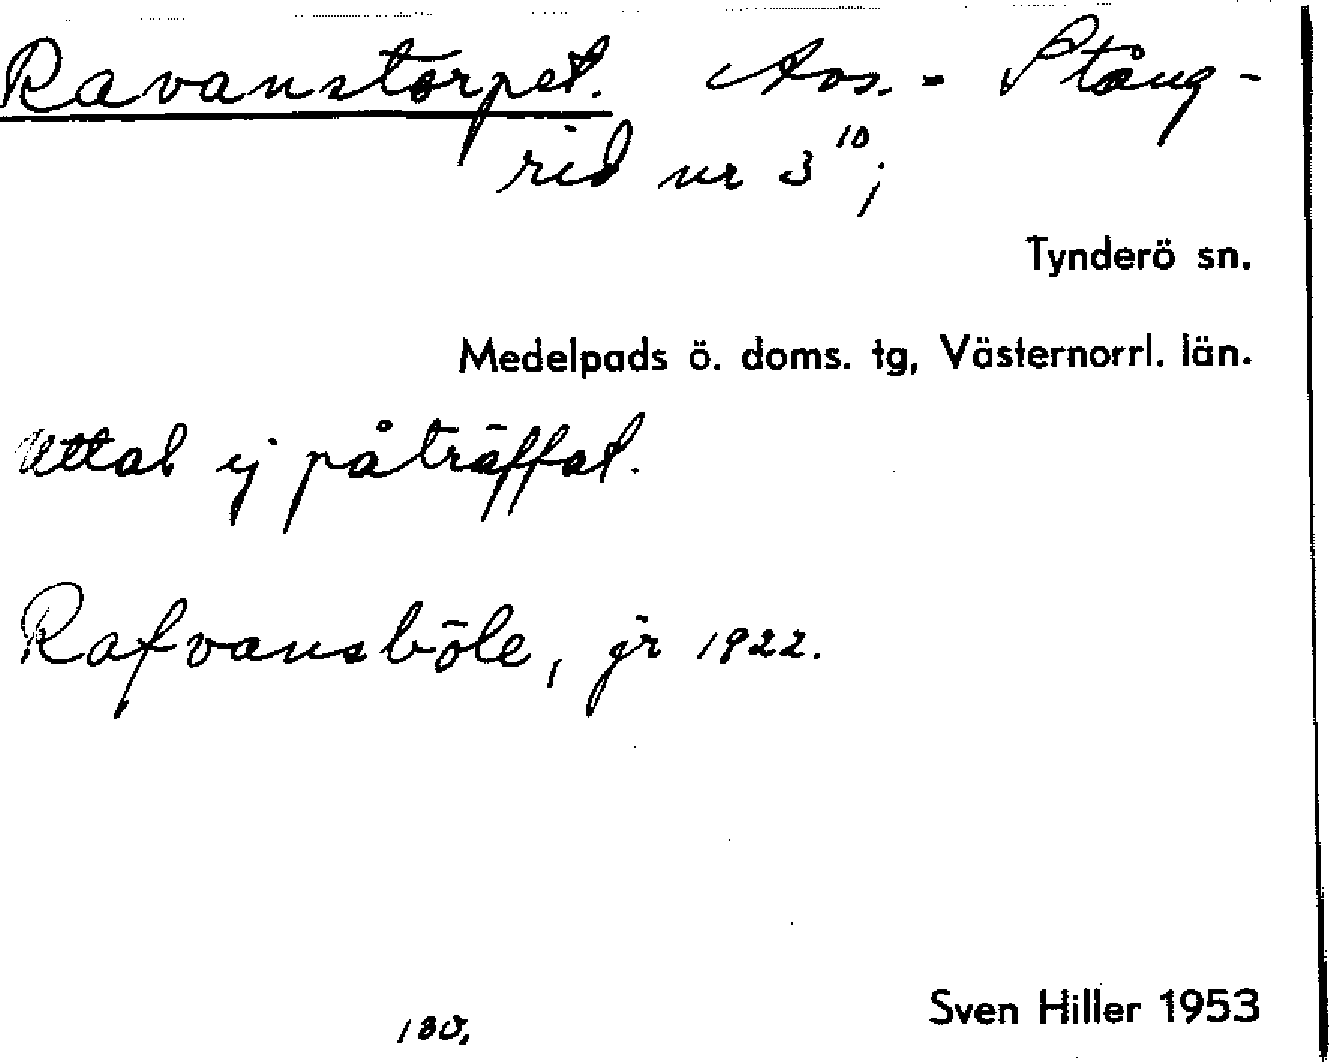 Ravanstorpet. Avs. - Stång-
rid nr 3¹⁰;
Tynderö sn.
Medelpads ö. doms. tg, Västernorrl. län.
Uttal ej påträffat.
Rafvansböle, jr 1922.
Sven Hiller 1953
180.